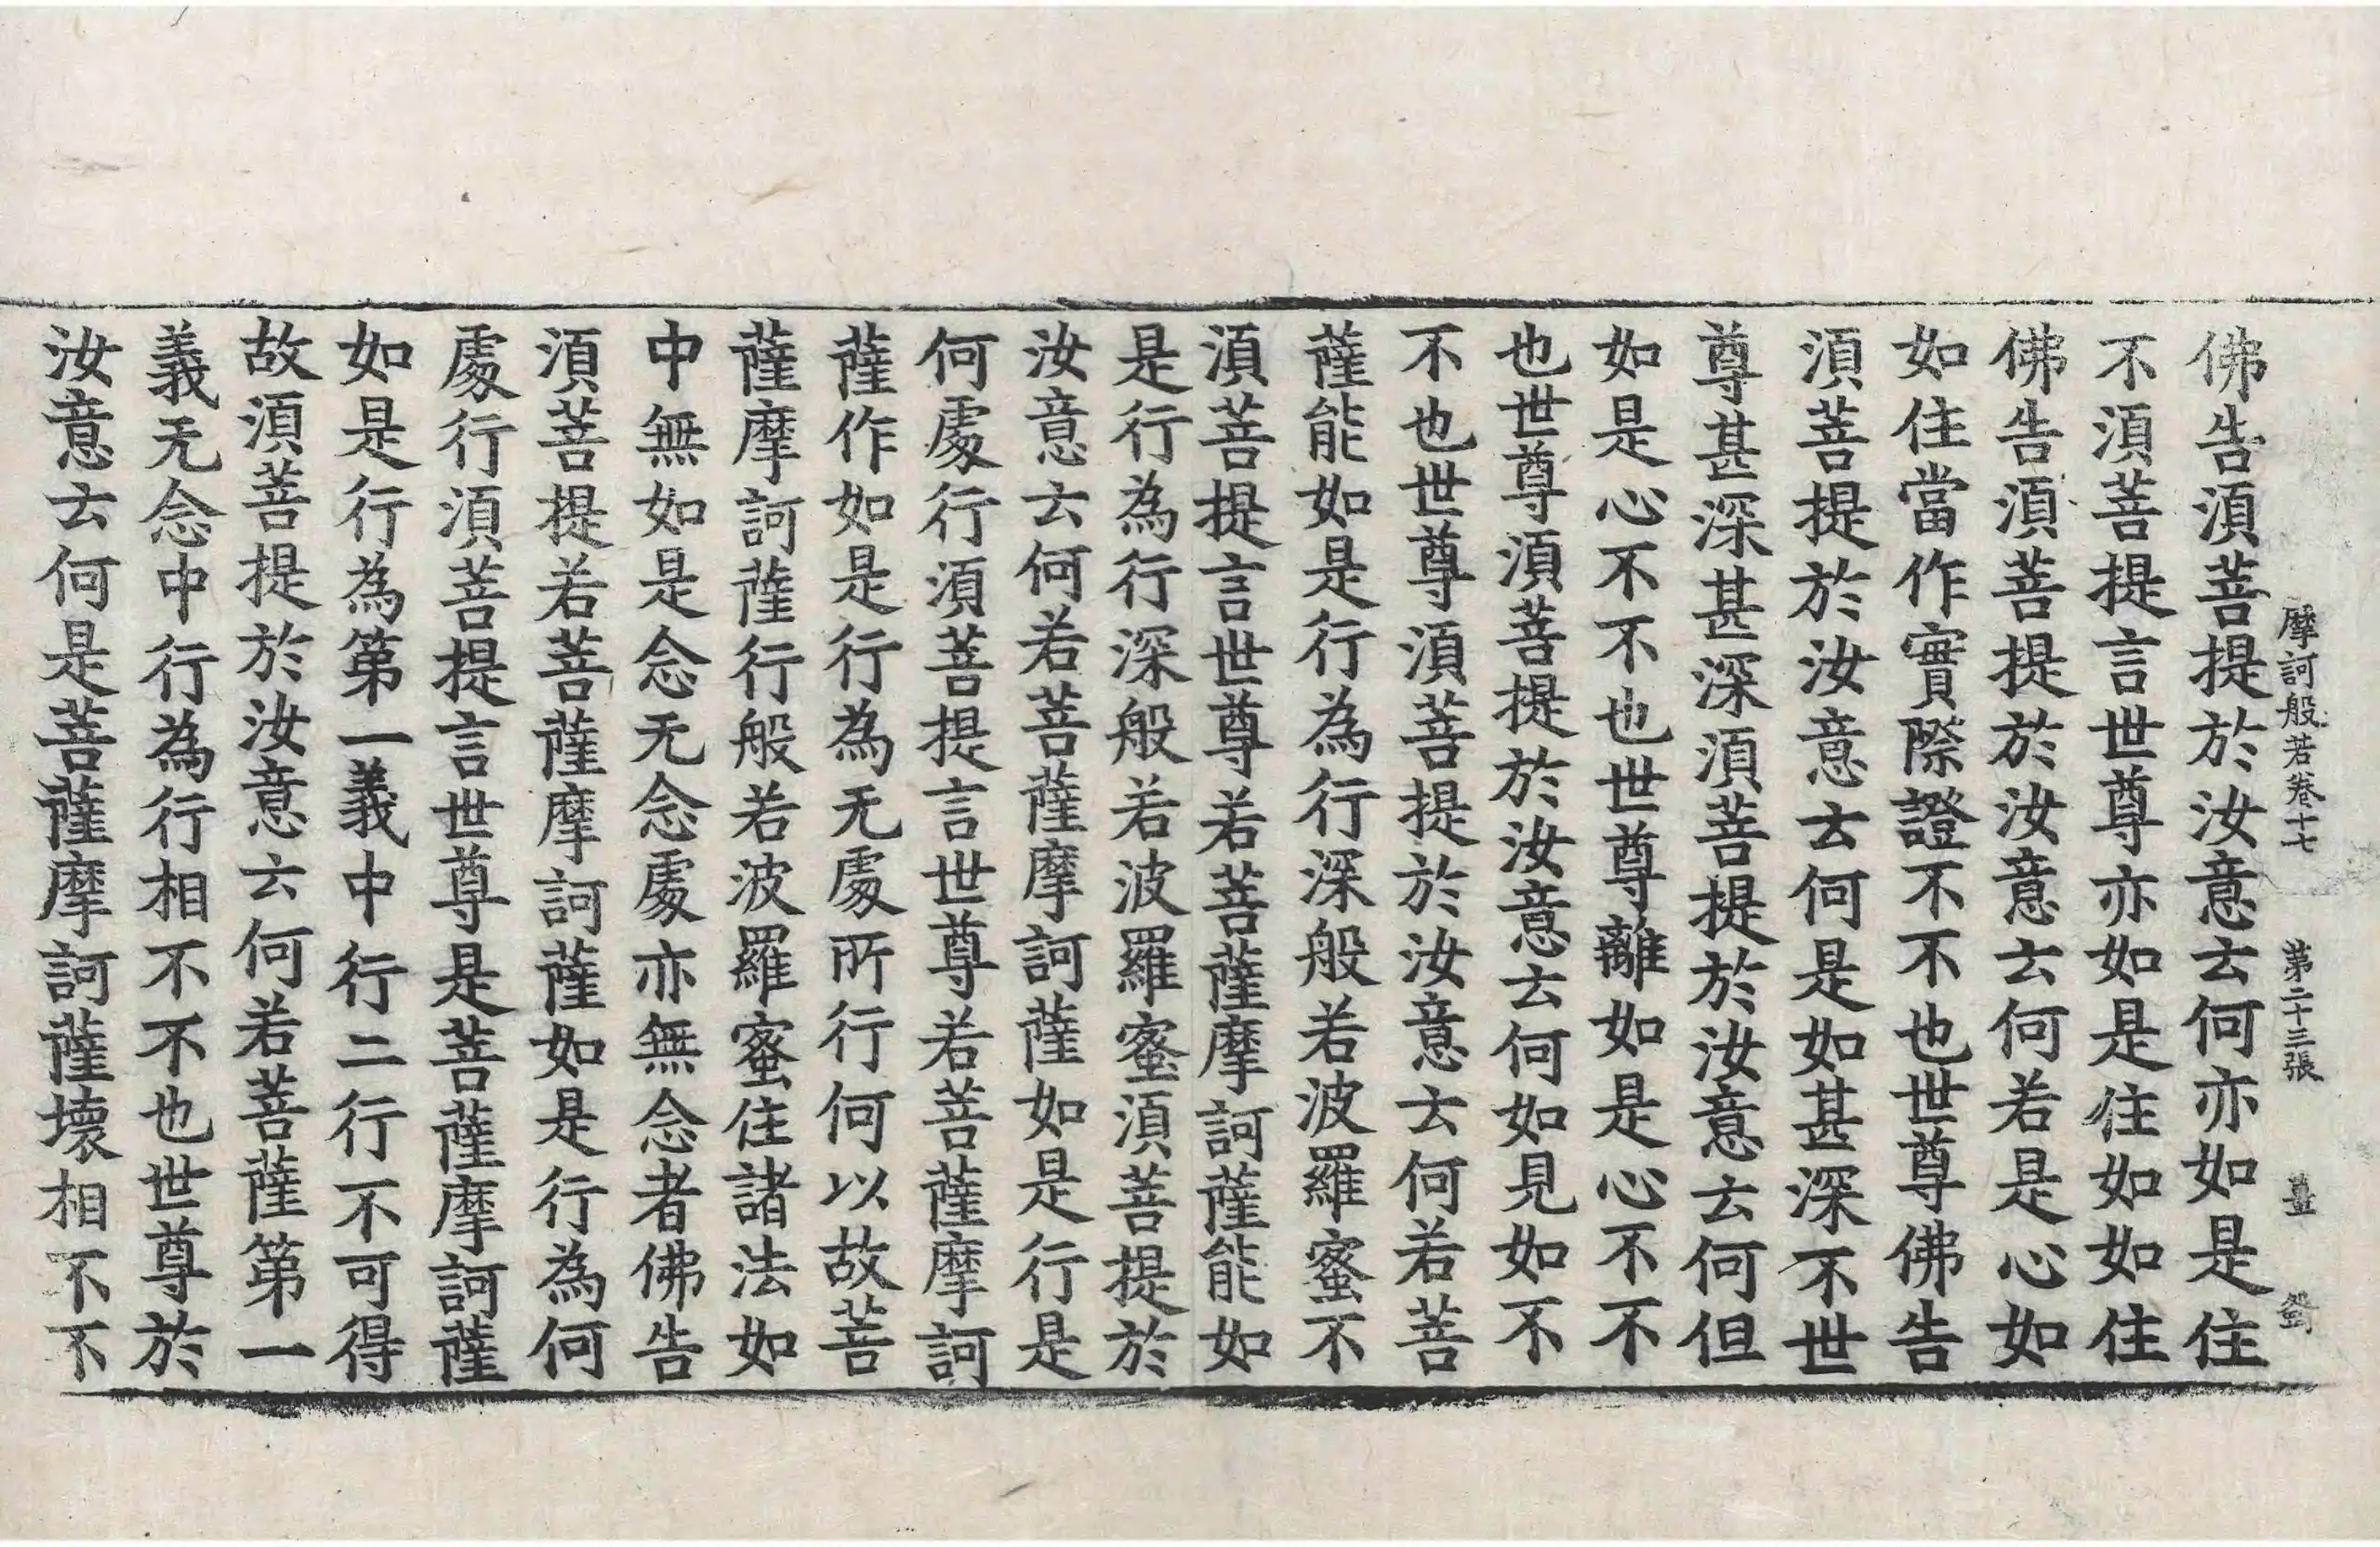 摩訶般若卷十七 第二十三張 薑
佛告湏菩提於汝意云何亦如是住
不湏菩提言世尊亦如是住如如住
佛告湏菩提於汝意云何若是心如
如住當作實際證不不也世尊佛告
湏菩提於汝意云何是如甚深不世
尊甚深甚深湏菩提於汝意云何但
如是心不不也世尊離如是心不不
也世尊湏菩提於汝意云何如見如不
不也世尊湏菩提於汝意云何若菩
薩能如是行為行深般若波羅蜜不
湏菩提言世尊若菩薩摩訶薩能如
是行為行深般若波羅蜜湏菩提於
汝意云何若菩薩摩訶薩如是行是
何處行湏菩提言世尊若菩薩摩訶
薩作如是行為无處所行何以故菩
薩摩訶薩行般若波羅蜜住諸法如
中無如是念无念處亦無念者佛告
湏菩提若菩薩摩訶薩如是行為何
處行湏菩提言世尊是菩薩摩訶薩
如是行為第一義中行二行不可得
故湏菩提於汝意云何若菩薩第一
義无念中行為行相不不也世尊於
汝意云何是菩薩摩訶薩壞相不不